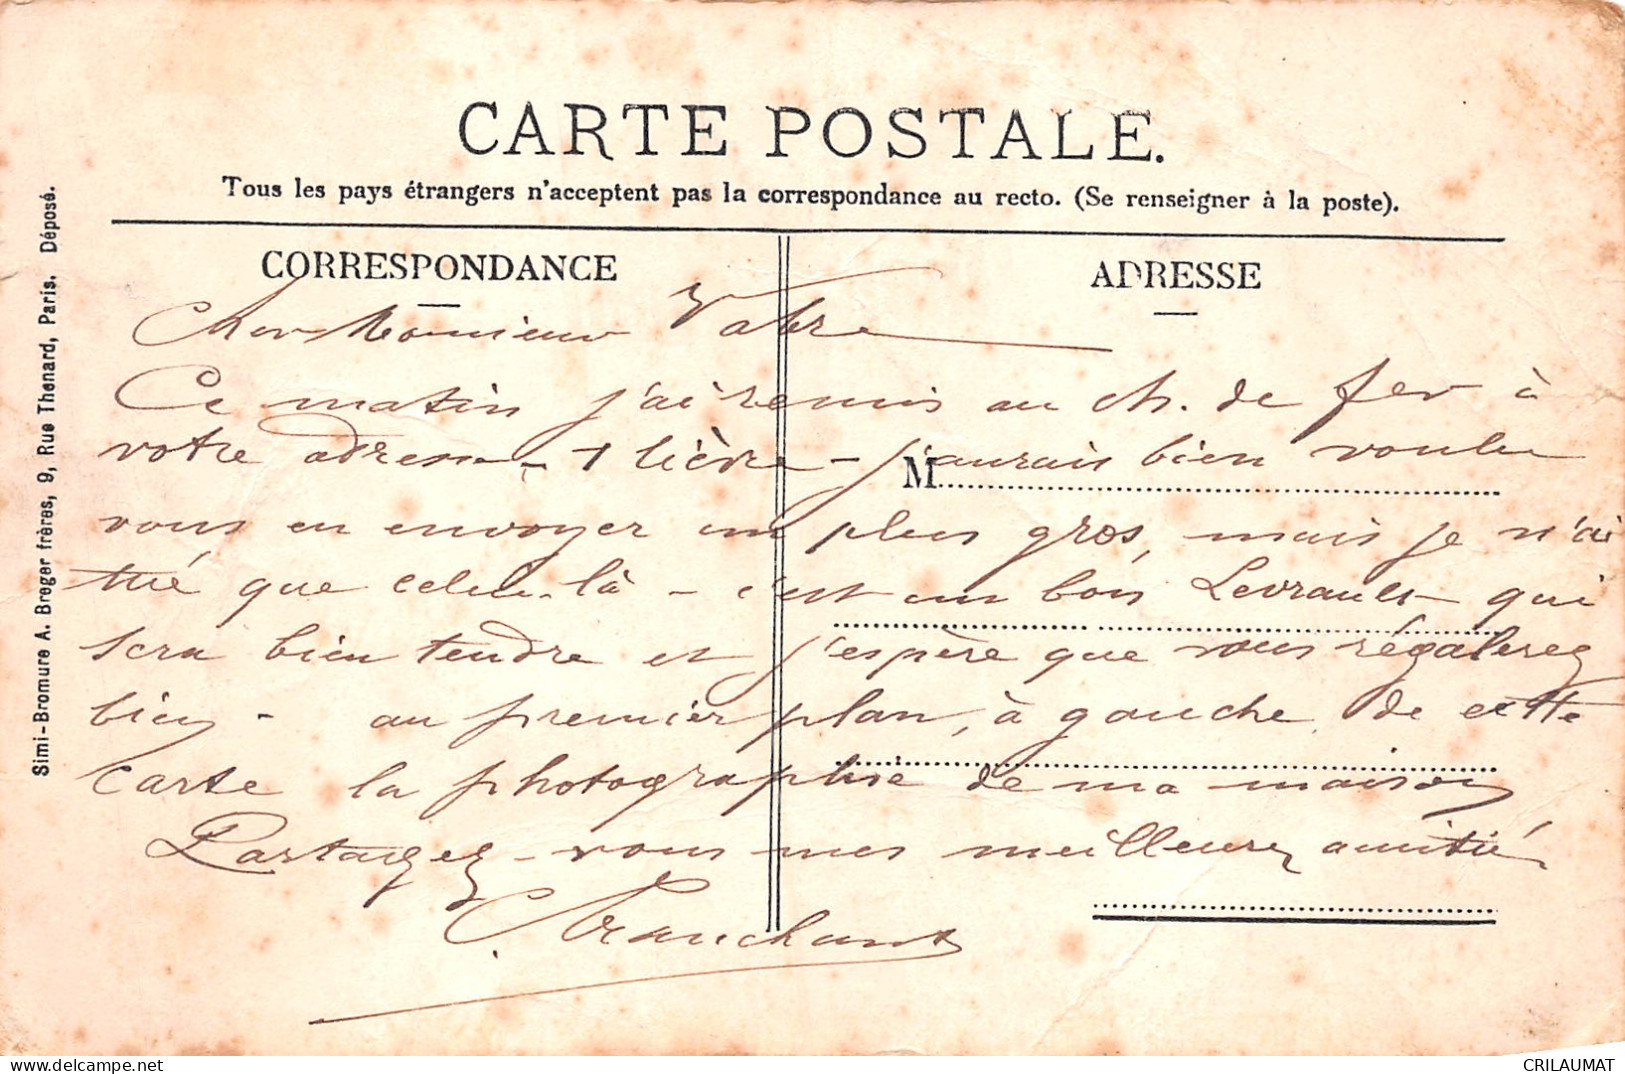 CARTE POSTALE.
Tous les pays étrangers n'acceptent pas la correspondance au recto. (Se renseigner à la poste).
CORRESPONDANCE
ADRESSE
Cher Monsieur Vabre
Ce matin j'ai remis au ch. de fer à
votre adresse - 1 lièvre - j'aurais bien voulu
M
vous en envoyer un plus gros, mais je n'ai
tué que celui-là - c'est un bon Levrault qui
sera bien tendre et j'espère que vous régalerez
bien - au premier plan, à gauche de cette
carte la photographie de ma maison
Partagez - vous mes meilleures amitiés
Simi-Bromure A. Breger frères, 9, Rue Thenard, Paris. Déposé.
CRILAUMAT